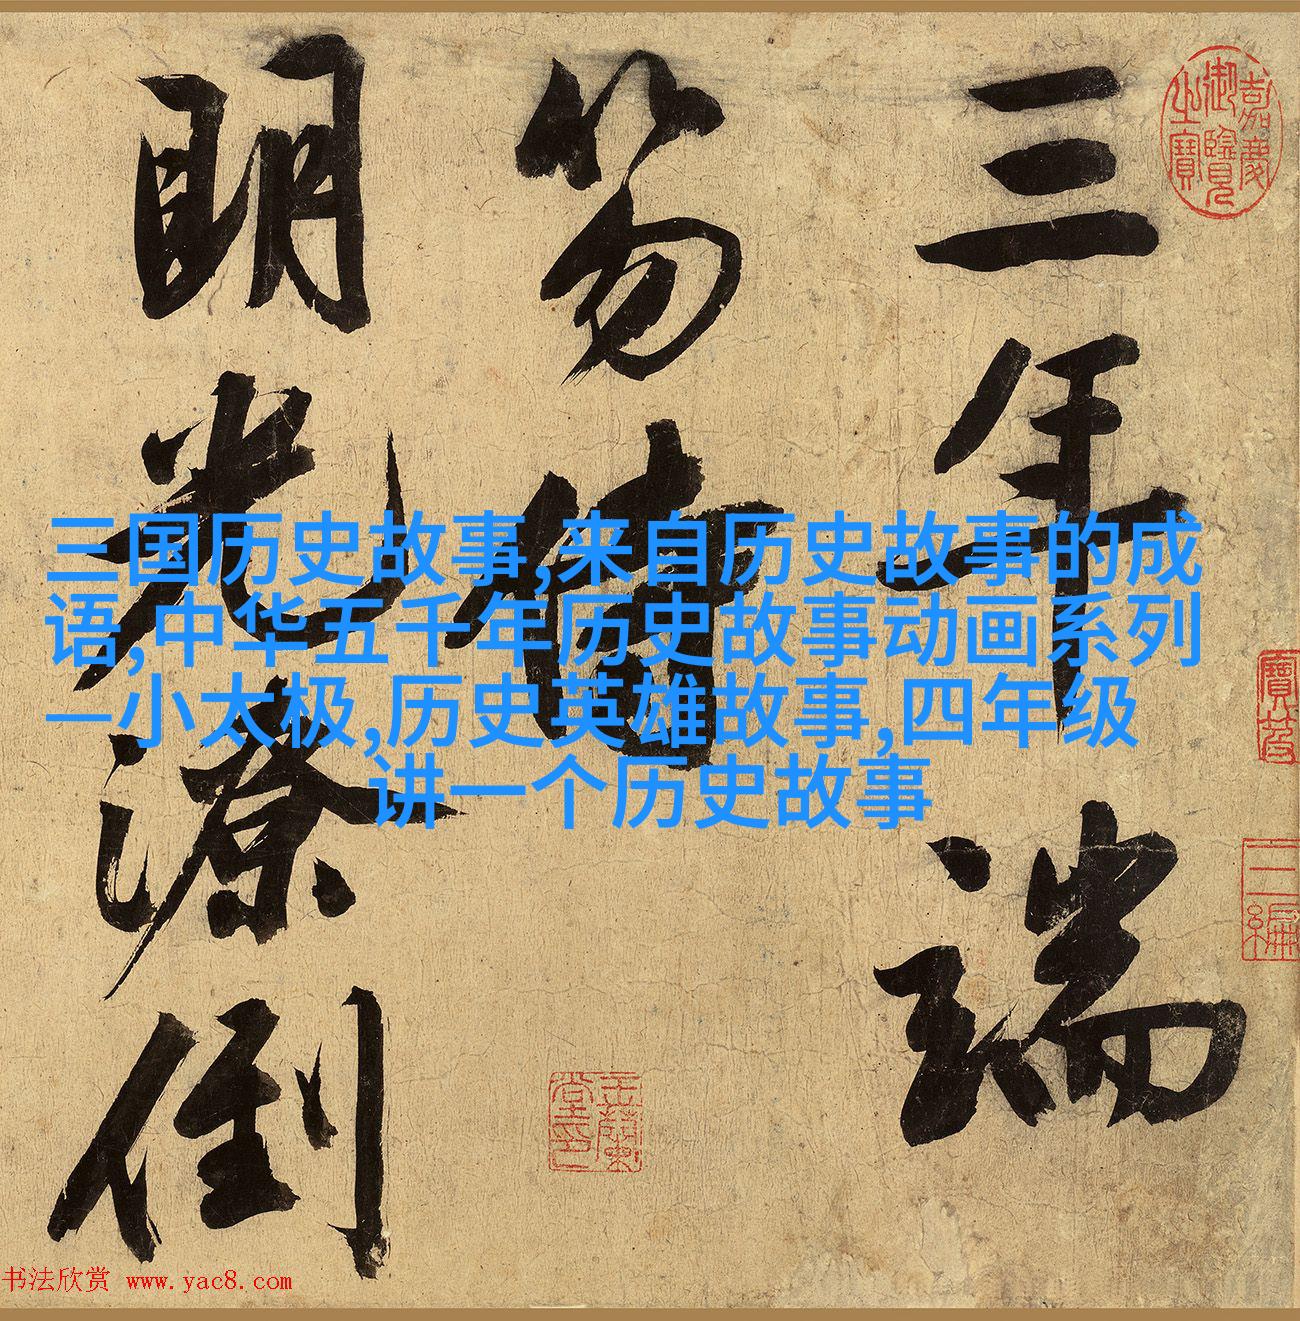 三年端
笏
明光潦倒
嘉慶
御覽
之寶
寶笈
三編
三国历史故事,来自历史故事的成
语,中华五千年历史故事动画系列
—小太极,历史英雄故事,四年级
讲一个历史故事
书法欣赏 www.yac8.com